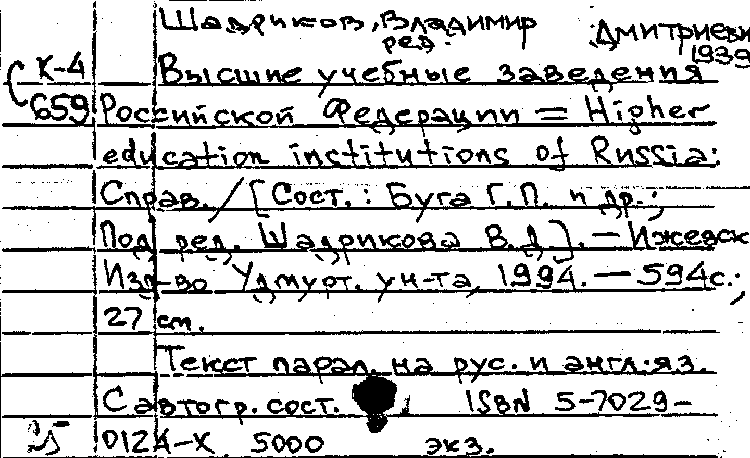 Шадриков, Владимир Дмитриеви
ред. 1939
К-4 Высшие учебные заведения
659 Российской Федерации = Higher
education institutions of Russia:
Справ. / [Сост.: Буга Г.П. и др.;
Под ред. Шадрикова В.Д.]. — Ижевск
Изд-во Удмурт. ун-та, 1994. — 594с.;
27 см.
Текст парал. на рус. и англ. яз.
С автогр. сост. ISBN 5-7029-
25 0124-X 5000 экз.